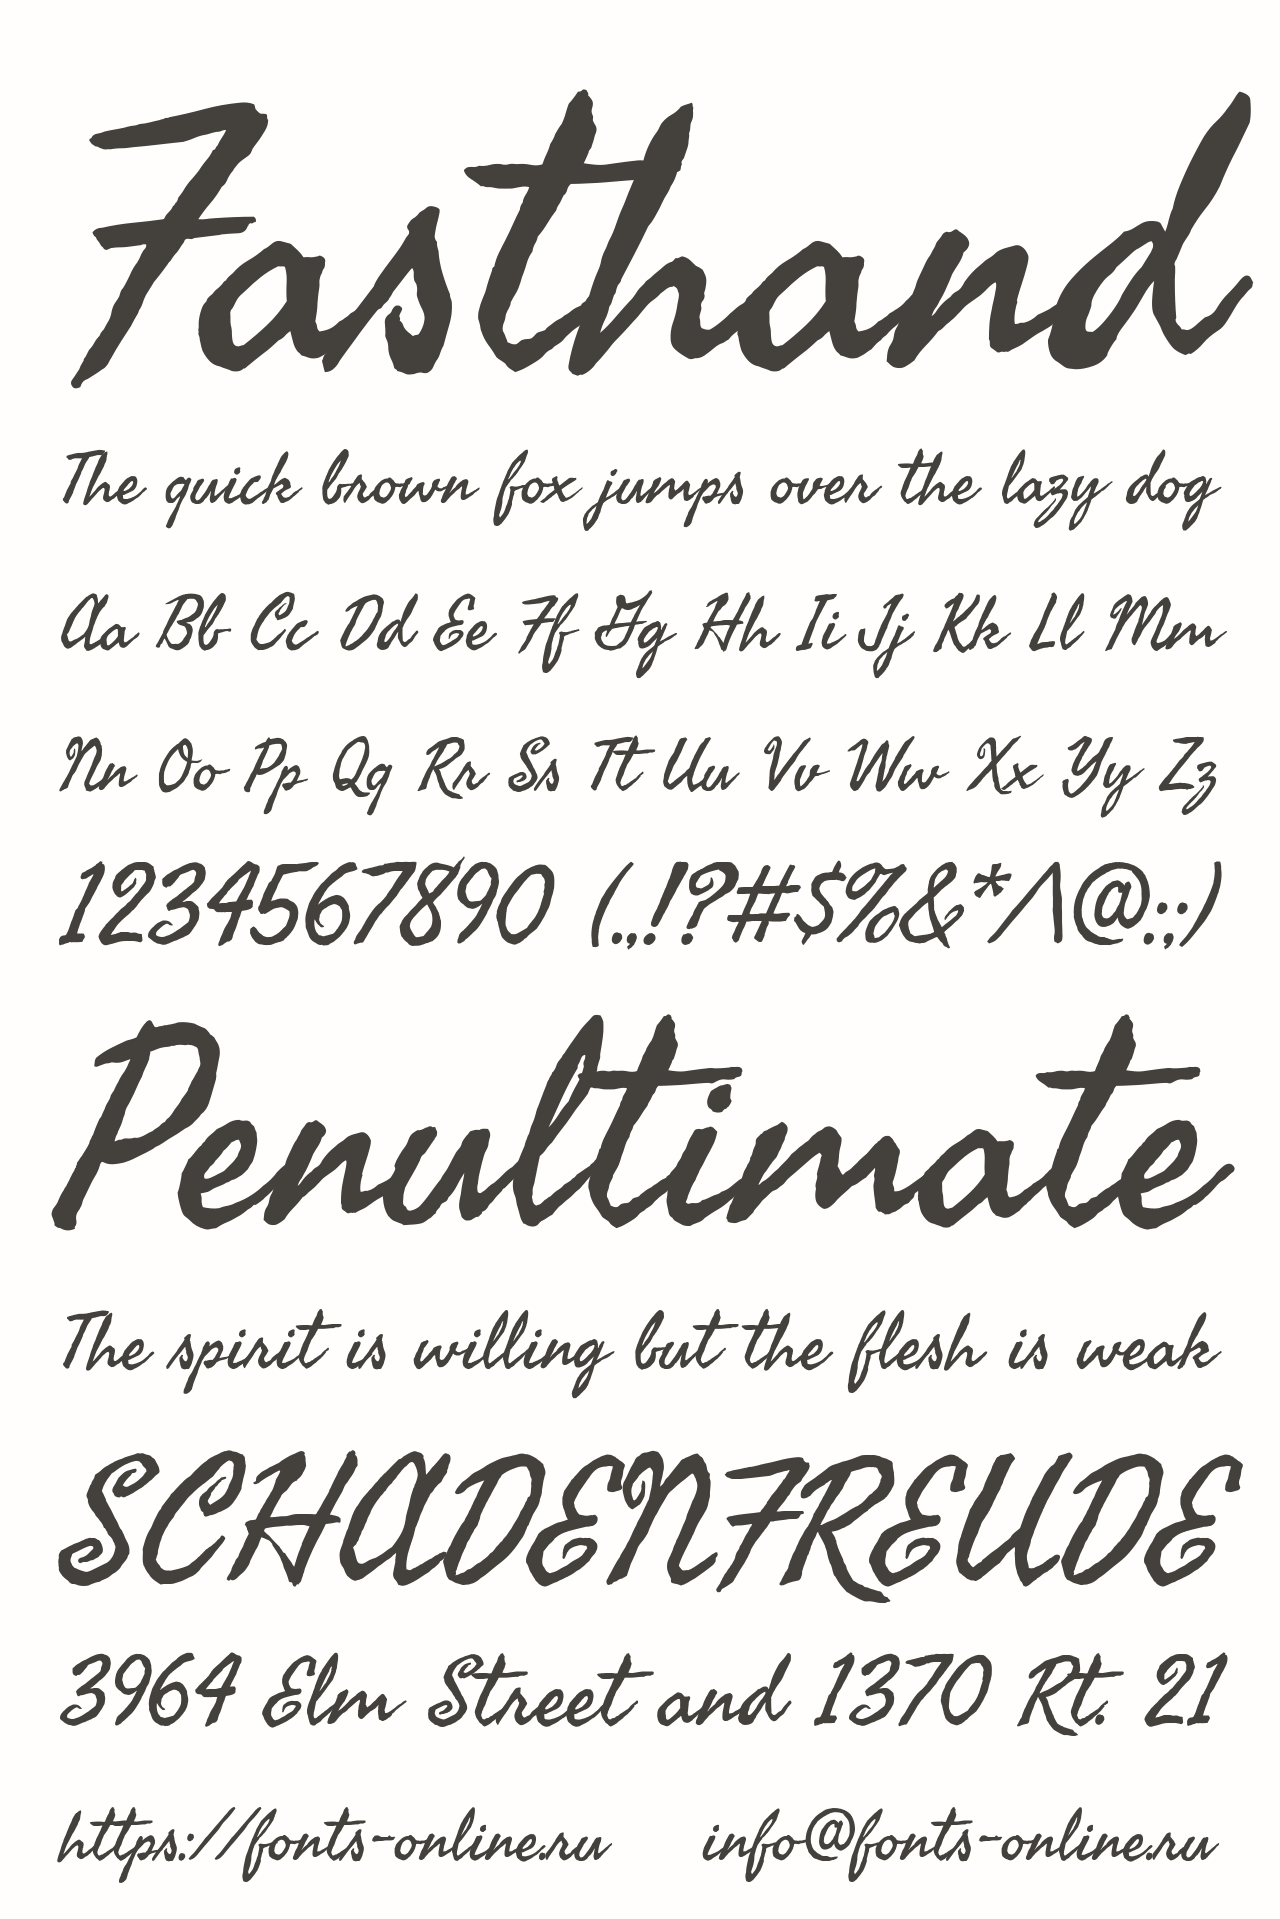 Fasthand
The quick brown fox jumps over the lazy dog
Aa Bb Cc Dd Ee Ff Gg Hh Ii Jj Kk Ll Mm
Nn Oo Pp Qq Rr Ss Tt Uu Vv Ww Xx Yy Zz
1234567890 (.,!?#$%&*/\@:;)
Penultimate
The spirit is willing but the flesh is weak
SCHADENFREUDE
3964 Elm Street and 1370 Rt. 21
https://fonts-online.ru info@fonts-online.ru